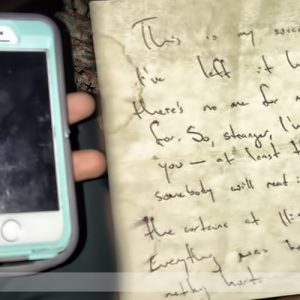 This is my
I've left it
there's no me for
for. So, stranger, I'm
you — at least
somebody will read
the curtains at
Everything was
nothing hurt.